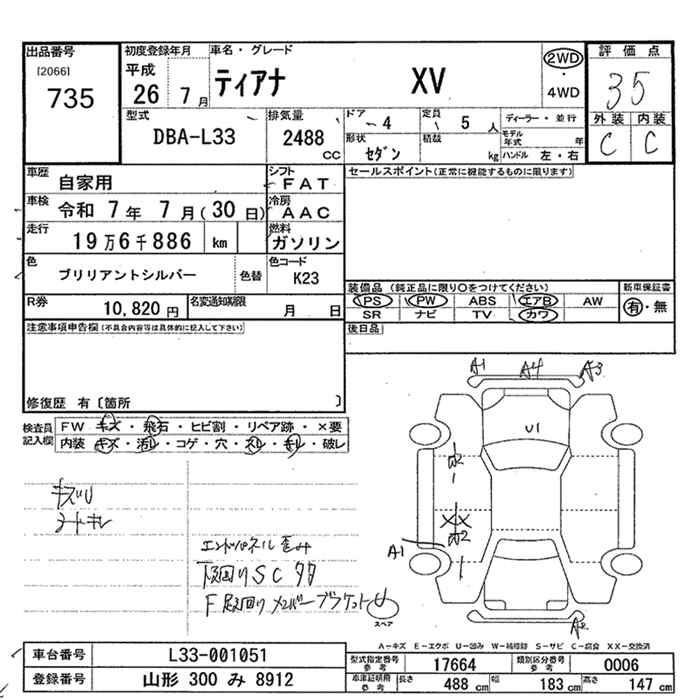 出品番号 初度登録年月 車名・グレード 評価点
[2066] 平成 ティアナ XV 2WD
735 26 7月 ・ 4WD 35
型式 排気量 ドア 4 定員 5人 ディーラー・並行 外装 内装
DBA-L33 2488 cc 形状 セダン 積載 kg モデル年式 年 C C
ハンドル 左・右
車歴 自家用 シフト FAT セールスポイント(正常に機能するものに限ります)
車検 令和 7年 7月(30日) 冷房 AAC
走行 19万6千886 km 燃料 ガソリン
色 ブリリアントシルバー 色替 色コード K23
装備品 (純正品に限り○をつけてください) 新車保証書
R券 10,820円 名変通知期限 月 日 PS PW ABS エアB AW 有・無
SR ナビ TV カワ
注意事項申告欄(不具合内容等は具体的に記入して下さい) 後日品
修復歴 有〔箇所 〕
検査員記入欄 FW キズ・飛石・ヒビ割・リペア跡・×要
内装 キズ・汚レ・コゲ・穴・スレ・キレ・破レ
A1 A4 A3
U1
キズU
シートキレ
エンドパネル歪み
下廻りSCササ
F下廻りメンバーブラケットU
A1
スペア
A2
A-キズ E-エクボ U-凹み W-補修跡 S-サビ C-腐食 XX-交換済
車台番号 L33-001051 型式指定番号 参考 17664 類別区分番号 参考 0006
登録番号 山形 300 み 8912 車庫証明用 参考 長さ 488cm 幅 183cm 高さ 147cm